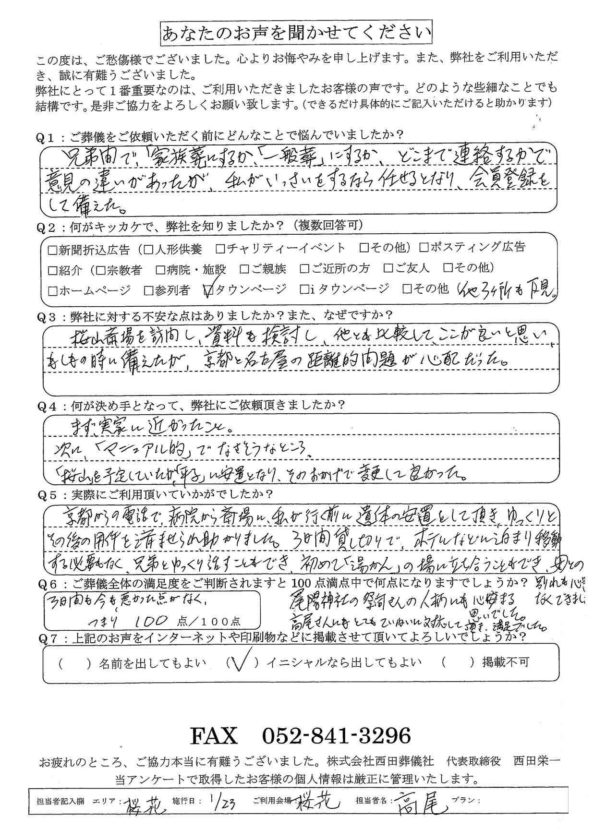 あなたのお声を聞かせてください
この度は、ご愁傷様でございました。心よりお悔やみを申し上げます。また、弊社をご利用いただ
き、誠に有難うございました。
弊社にとって1番重要なのは、ご利用いただきましたお客様の声です。どのような些細なことでも
結構です。是非ご協力をよろしくお願い致します。(できるだけ具体的にご記入いただけると助かります)
Q1:ご葬儀をご依頼いただく前にどんなことで悩んでいましたか?
兄弟間で、「家族葬にするか、「一般葬」にするか、どこまで連絡するかで
意見の違いがあったが、私がいっさいをするなら任せるとなり、会員登録を
して備えた。
Q2:何がキッカケで、弊社を知りましたか?(複数回答可)
□新聞折込広告(□人形供養 □チャリティーイベント □その他)□ポスティング広告
□紹介(□宗教者 □病院・施設 □ご親族 □ご近所の方 □ご友人 □その他)
□ホームページ □参列者 ☑タウンページ □iタウンページ □その他 他3ヶ所も下見。
Q3:弊社に対する不安な点はありましたか?また、なぜですか?
桜山斎場を訪問し、資料も検討し、他とも比較して、ここが良いと思い、
もしもの時に備えたが、京都と名古屋の距離的問題が心配だった。
Q4:何が決め手となって、弊社にご依頼頂きましたか?
まず、実家に近かったこと。
次に、「マニュアル的」でなさそうなところ。
「桜山を予定していたが「平子」に安置となり、そのおかげで変更して良かった。
Q5:実際にご利用頂いていかがでしたか?
京都からの電話で、病院から斎場に、私が行く前に遺体の安置をして頂き、ゆっくりと
その後の用件を済ませられ助かりました。3日間貸し切りで、ホテルなどに泊まり移動
する必要もなく、兄弟とゆっくり話すこともでき、初めて「湯かん」の場に立ち会うこともでき、母との
別れも心
なくできました
Q6:ご葬儀全体の満足度をご判断されますと100点満点中で何点になりますでしょうか?
3日間も今も悪かった点がなく、
つまり 100 点/100点
尾陽神社の祭司さんの人柄にも心安まる
思いでした。
高尾さんにもとてもていねいに対応して頂き、満足でした。
Q7:上記のお声をインターネットや印刷物などに掲載させて頂いてよろしいでしょうか?
( )名前を出してもよい (✓)イニシャルなら出してもよい ( )掲載不可
FAX 052-841-3296
お疲れのところ、ご協力本当に有難うございました。株式会社西田葬儀社 代表取締役 西田栄一
当アンケートで取得したお客様の個人情報は厳正に管理いたします。
担当者記入欄 エリア:桜花 施行日:1/23 ご利用会場:桜花 担当者名:高尾 プラン: